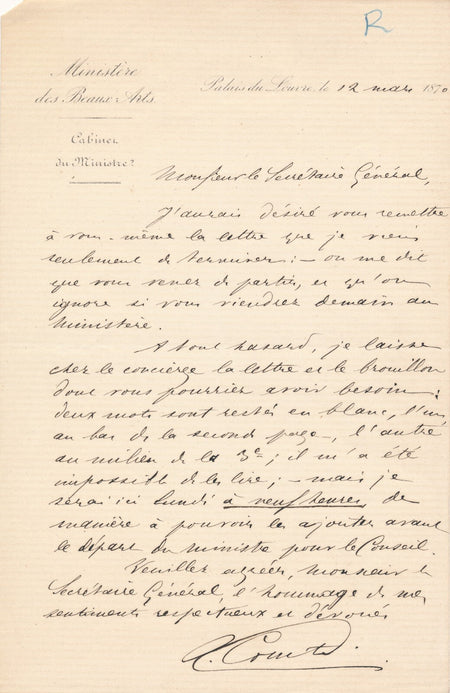 R
Ministère
des Beaux-Arts.
Palais du Louvre, le 12 mars 1870
Cabinet
du Ministre
Monsieur le Secrétaire Général,
J'aurais désiré vous remettre
à vous-même la lettre que je viens
seulement de terminer: - on me dit
que vous venez de partir, et qu'on
ignore si vous viendrez demain au
Ministère.
A tout hasard, je laisse
chez le concierge la lettre et le brouillon
dont vous pourriez avoir besoin:
deux mots sont restés en blanc, l'un
au bas de la seconde page, l'autre
au milieu de la 3e; il m'a été
impossible de les lire; - mais je
serai ici lundi à neuf heures, de
manière à pouvoir les ajouter avant
le départ du ministre pour le Conseil.
Veuillez agréer, Monsieur le
Secrétaire Général, l'hommage de mes
sentiments respectueux et dévoués
Comte